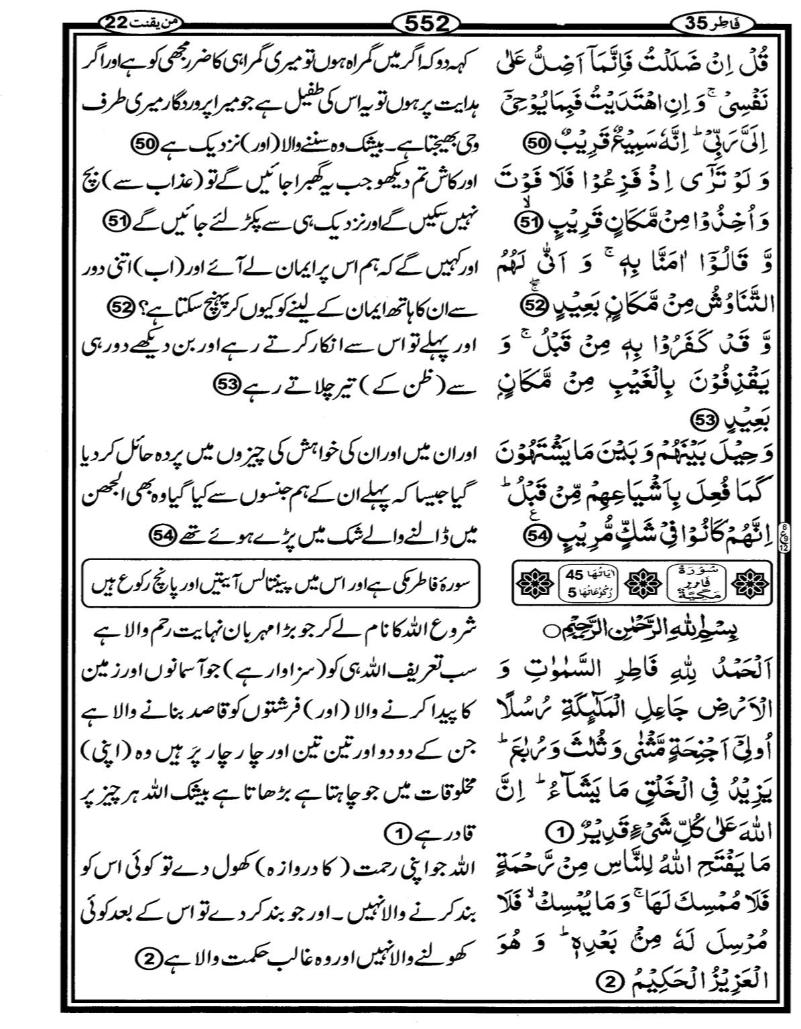 فاطر 35
552
من یقنت 22
قُلْ اِنْ ضَلَلْتُ فَاِنَّمَاۤ اَضِلُّ عَلٰى
نَفْسِیْ ۚ وَ اِنِ اهْتَدَیْتُ فَبِمَا یُوْحِیْۤ
اِلَیَّ رَبِّیْ ؕ اِنَّهٗ سَمِیْعٌ قَرِیْبٌ 50
وَ لَوْ تَرٰۤی اِذْ فَزِعُوْا فَلَا فَوْتَ
وَ اُخِذُوْا مِنْ مَّكَانٍ قَرِیْبٍ ۙ 51
وَّ قَالُوْۤا اٰمَنَّا بِهٖ ۚ وَ اَنّٰی لَهُمُ
التَّنَاوُشُ مِنْ مَّكَانٍۭ بَعِیْدٍ 52
وَّ قَدْ كَفَرُوْا بِهٖ مِنْ قَبْلُ ۚ وَ
یَقْذِفُوْنَ بِالْغَیْبِ مِنْ مَّكَانٍۭ
بَعِیْدٍ 53
وَ حِیْلَ بَیْنَهُمْ وَ بَیْنَ مَا یَشْتَهُوْنَ
كَمَا فُعِلَ بِاَشْیَاعِهِمْ مِّنْ قَبْلُ ؕ
اِنَّهُمْ كَانُوْا فِیْ شَكٍّ مُّرِیْبٍ ع 54
سُوْرَةُ فَاطِرٍ مَكِّیَّةٌ
اٰیَاتُهَا 45
رُكُوْعَاتُهَا 5
بِسْمِ اللّٰهِ الرَّحْمٰنِ الرَّحِیْمِ
اَلْحَمْدُ لِلّٰهِ فَاطِرِ السَّمٰوٰتِ وَ
الْاَرْضِ جَاعِلِ الْمَلٰٓىِٕكَةِ رُسُلًا
اُولِیْۤ اَجْنِحَةٍ مَّثْنٰی وَ ثُلٰثَ وَ رُبٰعَ ؕ
یَزِیْدُ فِی الْخَلْقِ مَا یَشَآءُ ؕ اِنَّ
اللّٰهَ عَلٰی كُلِّ شَیْءٍ قَدِیْرٌ 1
مَا یَفْتَحِ اللّٰهُ لِلنَّاسِ مِنْ رَّحْمَةٍ
فَلَا مُمْسِكَ لَهَا ۚ وَ مَا یُمْسِكْ ۙ فَلَا
مُرْسِلَ لَهٗ مِنْۢ بَعْدِهٖ ؕ وَ هُوَ
الْعَزِیْزُ الْحَكِیْمُ 2
کہہ دو کہ اگر میں گمراہ ہوں تو میری گمراہی کا ضرر مجھی کو ہے اور اگر
ہدایت پر ہوں تو یہ اس کی طفیل ہے جو میرا پروردگار میری طرف
وحی بھیجتا ہے۔ بیشک وہ سننے والا (اور) نزدیک ہے 50
اور کاش تم دیکھو جب یہ گھبرا جائیں گے تو (عذاب سے) بچ
نہیں سکیں گے اور نزدیک ہی سے پکڑ لئے جائیں گے 51
اور کہیں گے کہ ہم اس پر ایمان لے آئے اور (اب) اتنی دور
سے ان کا ہاتھ ایمان کے لینے کو کیوں کر پہنچ سکتا ہے؟ 52
اور پہلے تو اس سے انکار کرتے رہے اور بن دیکھے دور ہی
سے (ظن کے) تیر چلاتے رہے 53
اور ان میں اور ان کی خواہش کی چیزوں میں پردہ حائل کر دیا
گیا جیسا کہ پہلے ان کے ہم جنسوں سے کیا گیا وہ بھی الجھن
میں ڈالنے والے شک میں پڑے ہوئے تھے 54
سورۂ فاطر مکی ہے اور اس میں پینتالس آیتیں اور پانچ رکوع ہیں
شروع اللہ کا نام لے کر جو بڑا مہربان نہایت رحم والا ہے
سب تعریف اللہ ہی کو (سزاوار ہے) جو آسمانوں اور زمین
کا پیدا کرنے والا (اور) فرشتوں کو قاصد بنانے والا ہے
جن کے دو دو اور تین تین اور چار چار پر ہیں وہ (اپنی)
مخلوقات میں جو چاہتا ہے بڑھاتا ہے بیشک اللہ ہر چیز پر
قادر ہے 1
اللہ جو اپنی رحمت (کا دروازہ) کھول دے تو کوئی اس کو
بند کرنے والا نہیں۔ اور جو بند کر دے تو اس کے بعد کوئی
کھولنے والا نہیں اور وہ غالب حکمت والا ہے 2